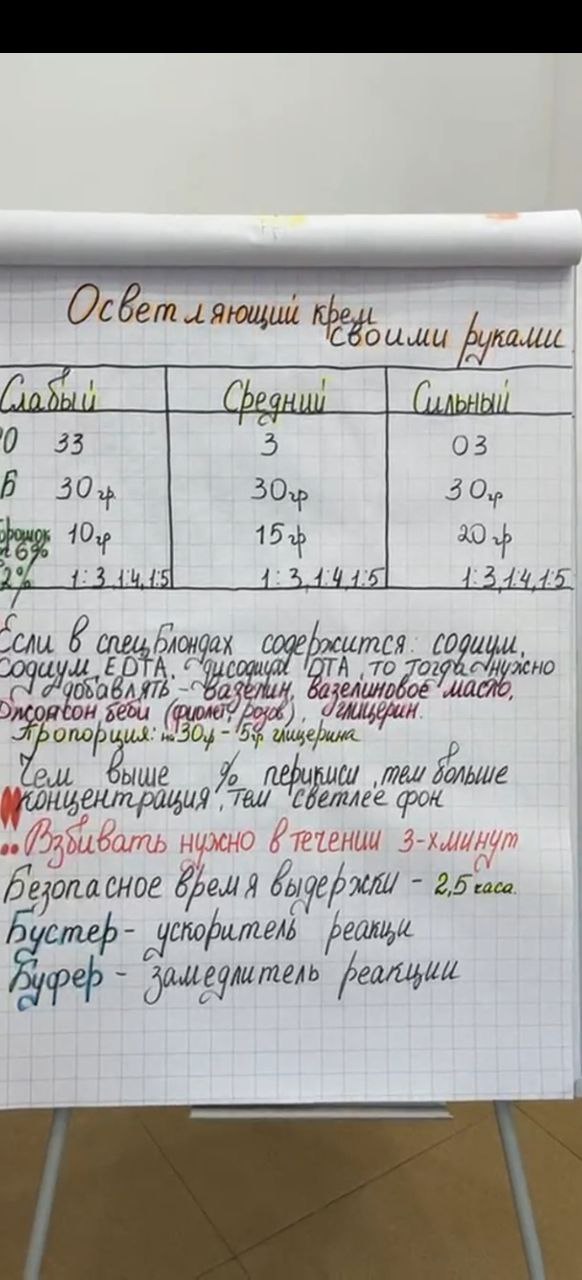 Осветляющий крем
своими руками
Слабый Средний Сильный
О 33 3 03
Б 30гр 30гр 30гр
10гр 15гр 20гр
6%
2% 1:3,1:4,1:5 1:3,1:4,1:5 1:3,1:4,1:5
Если в спец.блондах содержится: содиум,
содиум, EDTA, дисодиум DTA, то тогда нужно
добавлять - вазелин, вазелиновое масло,
Джонсон беби (фиолет, розов), глицерин.
Пропорция: на 30гр - 5гр глицерина
Чем выше % перикиси, тем больше
концентрация, тем светлее фон
Взбивать нужно в течении 3-х минут
Безопасное время выдержки - 2,5 часа.
Бустер - ускоритель реакци
Буфер - замедлитель реакции